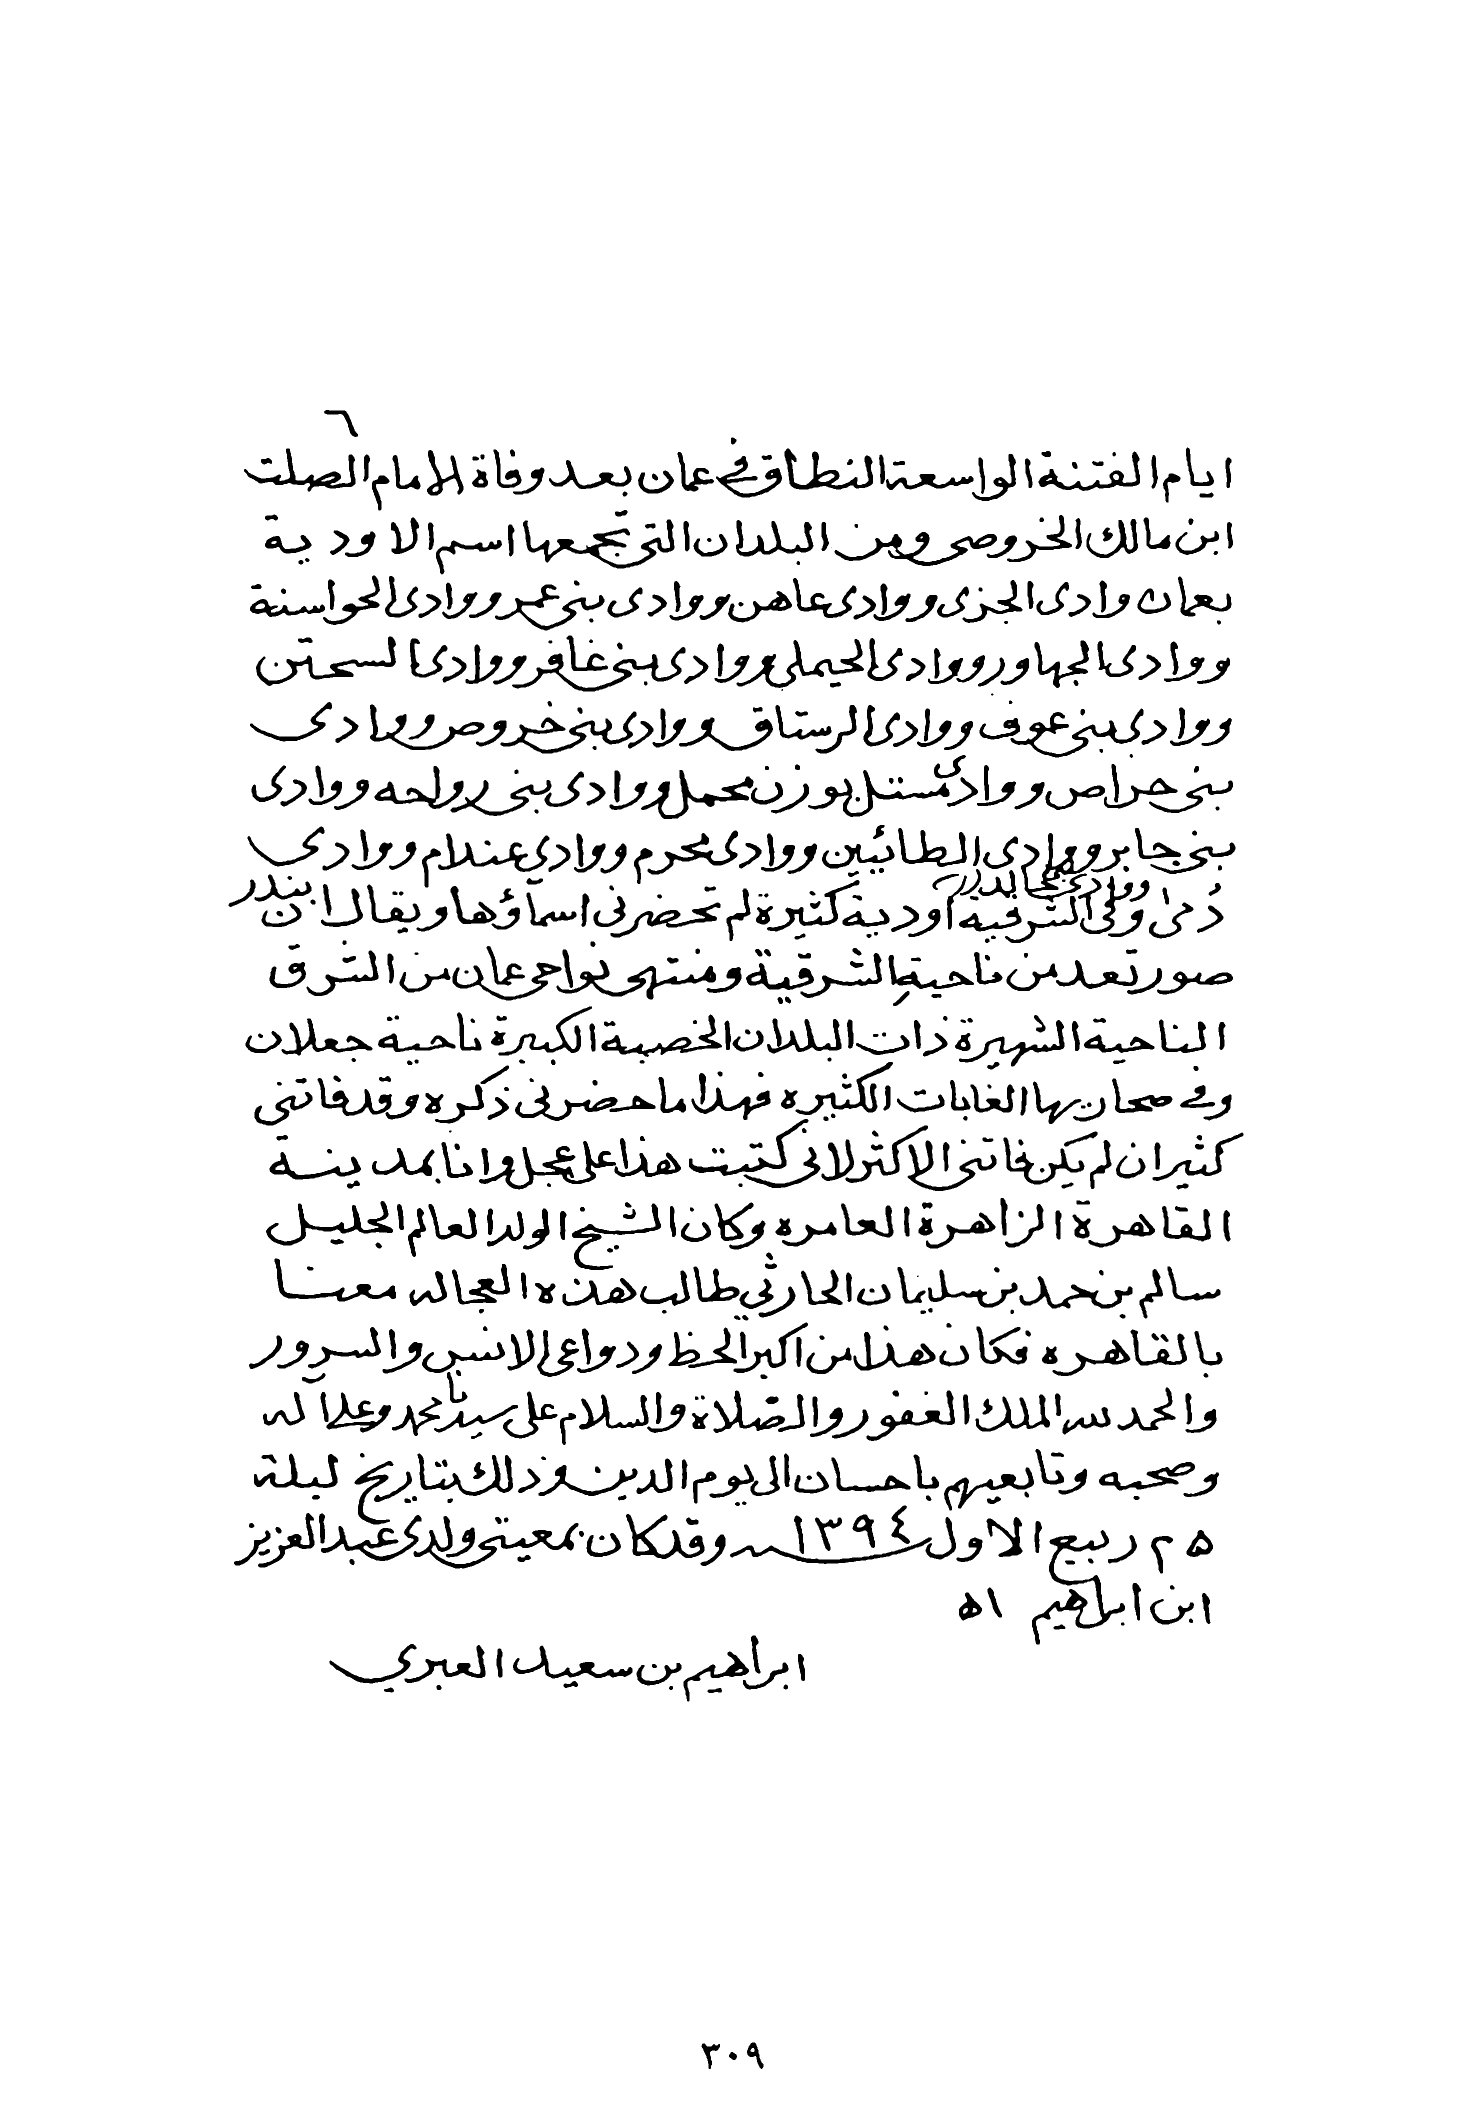 ٦
ايام الفتنة الواسعة النطاق في عمان بعد وفاة الامام الصلت
ابن مالك الخروصي ومن البلدان التي تجمعها اسم الاودية
بعمان وادى الجزى ووادى عاهن ووادى بنى عمر ووادى الحواسنة
ووادى الجهاور ووادى الحيملى ووادى بنى غافر ووادى السحتن
ووادى بنى عوف ووادى الرستاق ووادى بنى خروص ووادى
بنى حراص ووادى مستل بوزن محمل ووادى بنى رواحه ووادى
بنى جابر ووادى الطائيين ووادى محرم ووادى عندام ووادي
ووادى
دُمى وفى الشرقية اودية كثيرة لم تحضرنى اسمآؤها ويقال ان بندر
صور تعد من ناحية الشرقية ومنتهى نواحى عمان من الشرق
الناحية الشهيرة ذات البلدان الخصبة الكبيرة ناحية جعلان
وفي صحاريها الغابات الكثيره فهذا ما حضرنى ذكره وقد فاتنى
كثير ان لم يكن فاتنى الاكثر لانى كتبت هذا على عجل وانا بمدينة
القاهرة الزاهرة العامره وكان الشيخ الولد العالم الجليل
سالم بن حمد بن سليمان الحارثي طالب هذه العجاله معنا
بالقاهره فكان هذا من اكبر الحظ ودواعى الانس والسرور
والحمد لله الملك الغفور والصّلاة والسلام على سيدنا محمد وعلى آله
وصحبه وتابعيهم باحسان الى يوم الدين وذلك بتاريخ ليلة
٢٥ ربيع الاول ١٣٩٤ هـ وقد كان بمعيتى ولدى عبد العزيز
ابن ابراهيم اه
ابراهيم بن سعيد العبري
٣٠٩